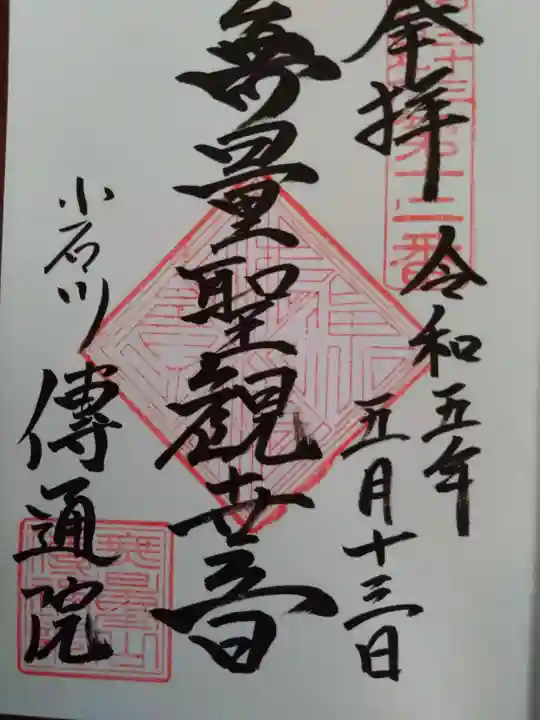 奉拝
令和五年
五月十三日
無量聖観世音
小石川
傳通院
第十二番